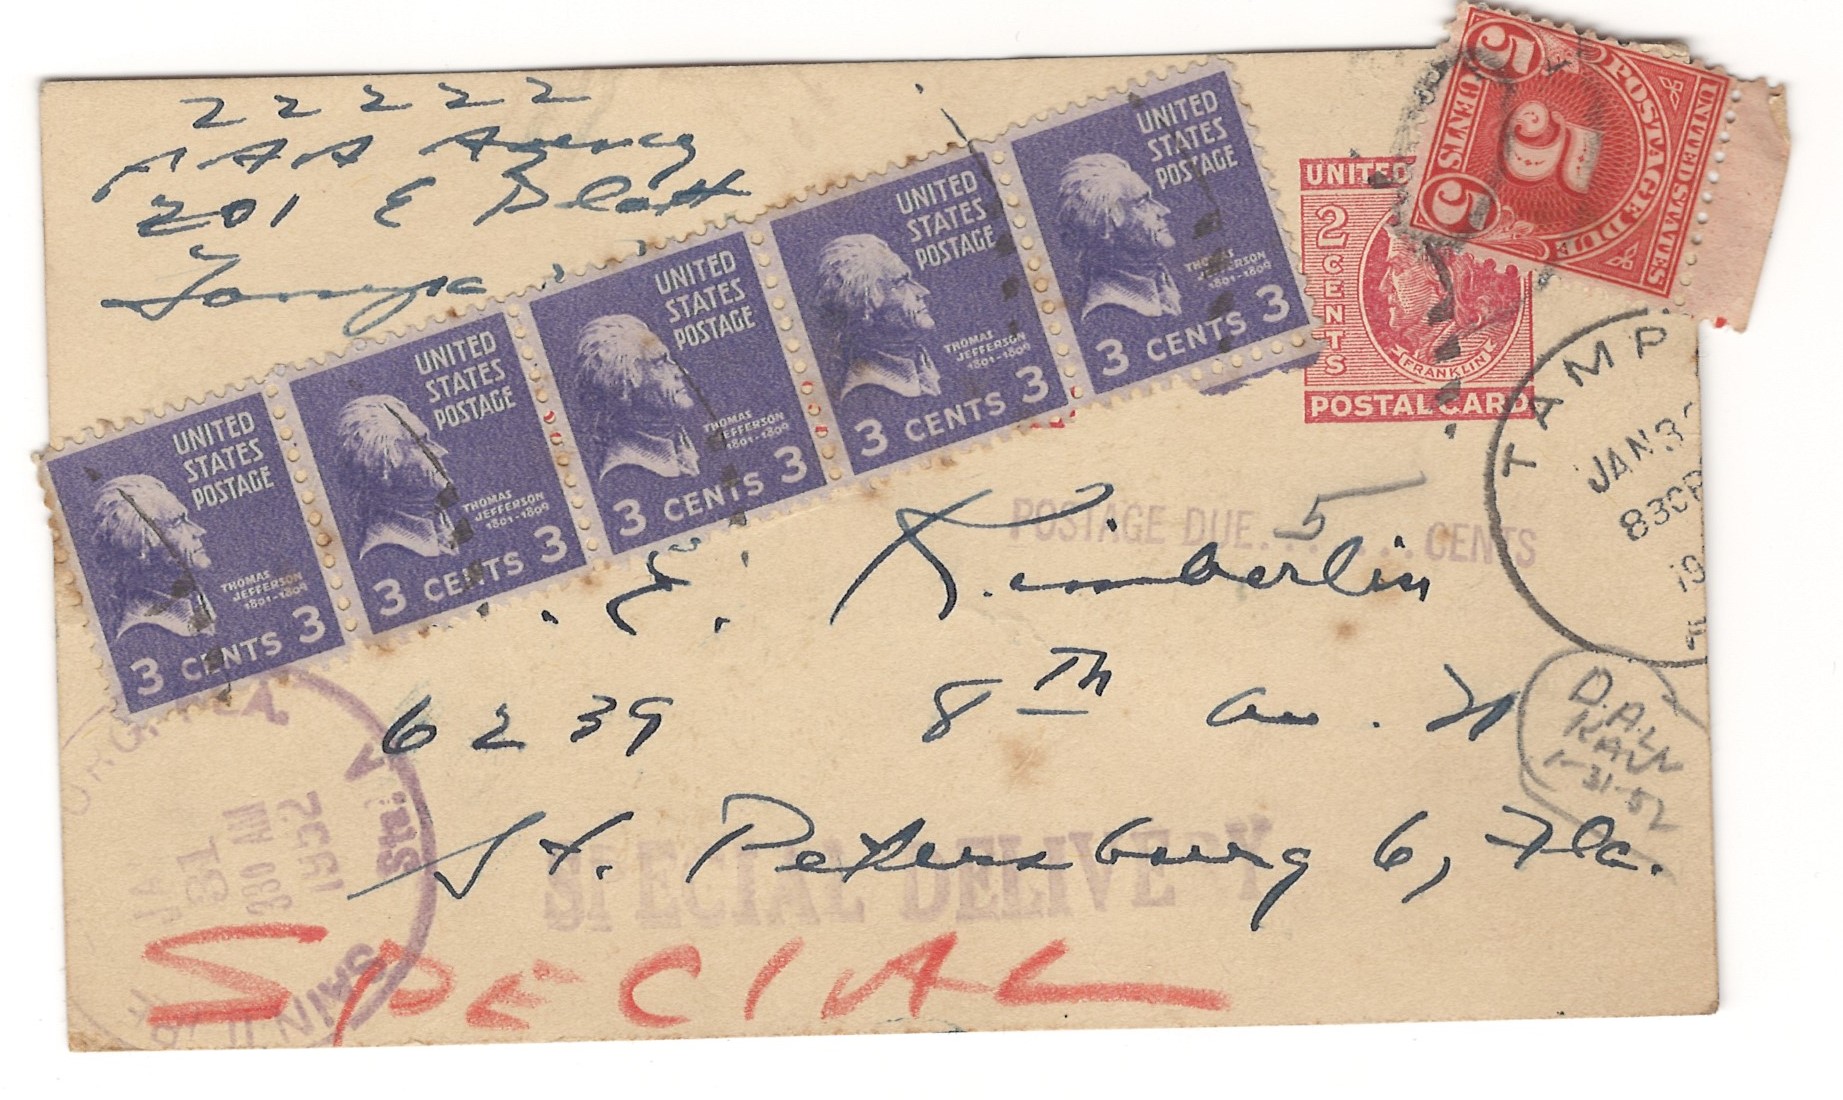 22222
AAA Agency
201 E Platt
Tampa
UNITED STATES POSTAGE
THOMAS JEFFERSON
1801-1809
3 CENTS 3
UNITED STATES POSTAGE
THOMAS JEFFERSON
1801-1809
3 CENTS 3
UNITED STATES POSTAGE
THOMAS JEFFERSON
1801-1809
3 CENTS 3
UNITED STATES POSTAGE
THOMAS JEFFERSON
1801-1809
3 CENTS 3
UNITED STATES POSTAGE
THOMAS JEFFERSON
1801-1809
3 CENTS 3
UNITED
2 CENTS
FRANKLIN
POSTAL CARD
UNITED STATES
POSTAGE DUE
5 CENTS 5
5
TAMP
JAN 3
830P
19
POSTAGE DUE. 5 CENTS
. E. Kimberlin
6239 8th av. N
St. Petersburg 6, Fla.
SPECIAL DELIVERY
SPECIAL
1-31-52
SAINT
JAN
31
330 AM
1952